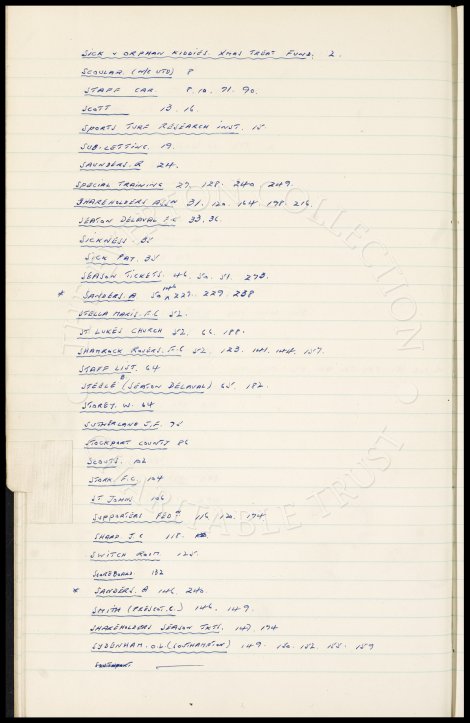 SICK & ORPHAN KIDDIES. XMAS TREAT FUND. 2.
SCOULAR (N/C UTD) 8
STAFF CAR. 8. 10. 71. 90.
SCOTT 13. 16.
SPORTS TURF RESEARCH INST. 15.
SUB-LETTING. 19.
SAUNDERS. R 24.
SPECIAL TRAINING 27. 128. 240. 249.
SHAREHOLDERS ASSN 31. 120. 164. 198. 216.
SEATON DELAVAL F.C 33. 36.
SICKNESS. 35
SICK PAY. 35
SEASON TICKETS. 46. 50. 51. 273.
* SANDERS. A 50. 146 227. 229. 238
STELLA MARIS. F.C 52.
ST. LUKES CHURCH 52. 66. 188.
SHAMROCK ROVERS. F.C 52. 123. 141. 144. 157.
STAFF LIST. 64
STEELE (SEATON DELAVAL) 65. 182.
STOREY. W. 64
SUTHERLAND J.F. 75
STOCKPORT COUNTY 86
SCOUTS. 102
STORK F.C. 104
ST JOHNS 106
SUPPORTERS FEDN 116. 120. 174
SHARP J.C 118.
SWITCH ROOM. 125.
SCOREBOARD 132
* SANDERS. A 146. 240.
SMITH (PRESENT. C.) 146. 149.
SHAREHOLDERS SEASON TKTS. 147 174
SYDENHAM. O.L. (SOUTHAMPTON) 149. 150. 152. 155. 159
SOUTHPORT.
COLLECTION
TRUST